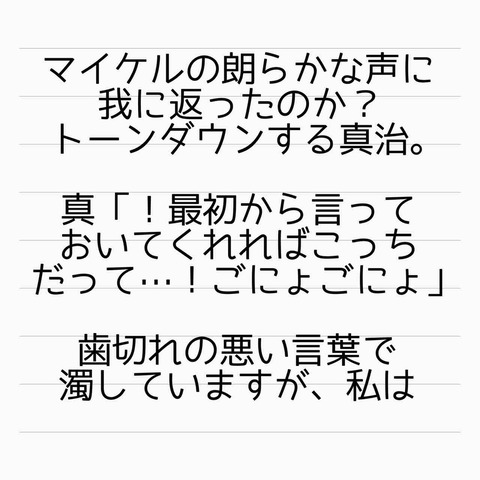 マイケルの朗らかな声に
我に返ったのか?
トーンダウンする真治。
真「!最初から言って
おいてくれればこっち
だって…!ごにょごにょ」
歯切れの悪い言葉で
濁していますが、私は